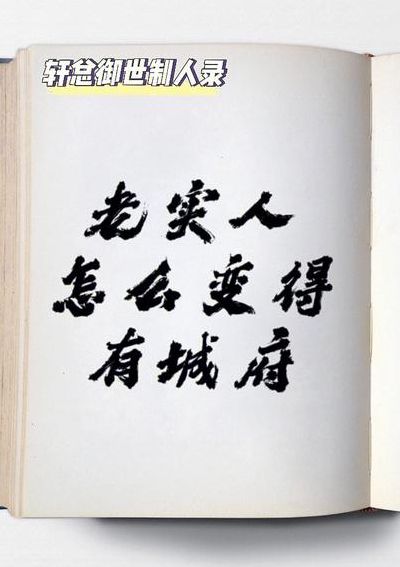 轩总御世制人录
老实人
怎么变得
有城府